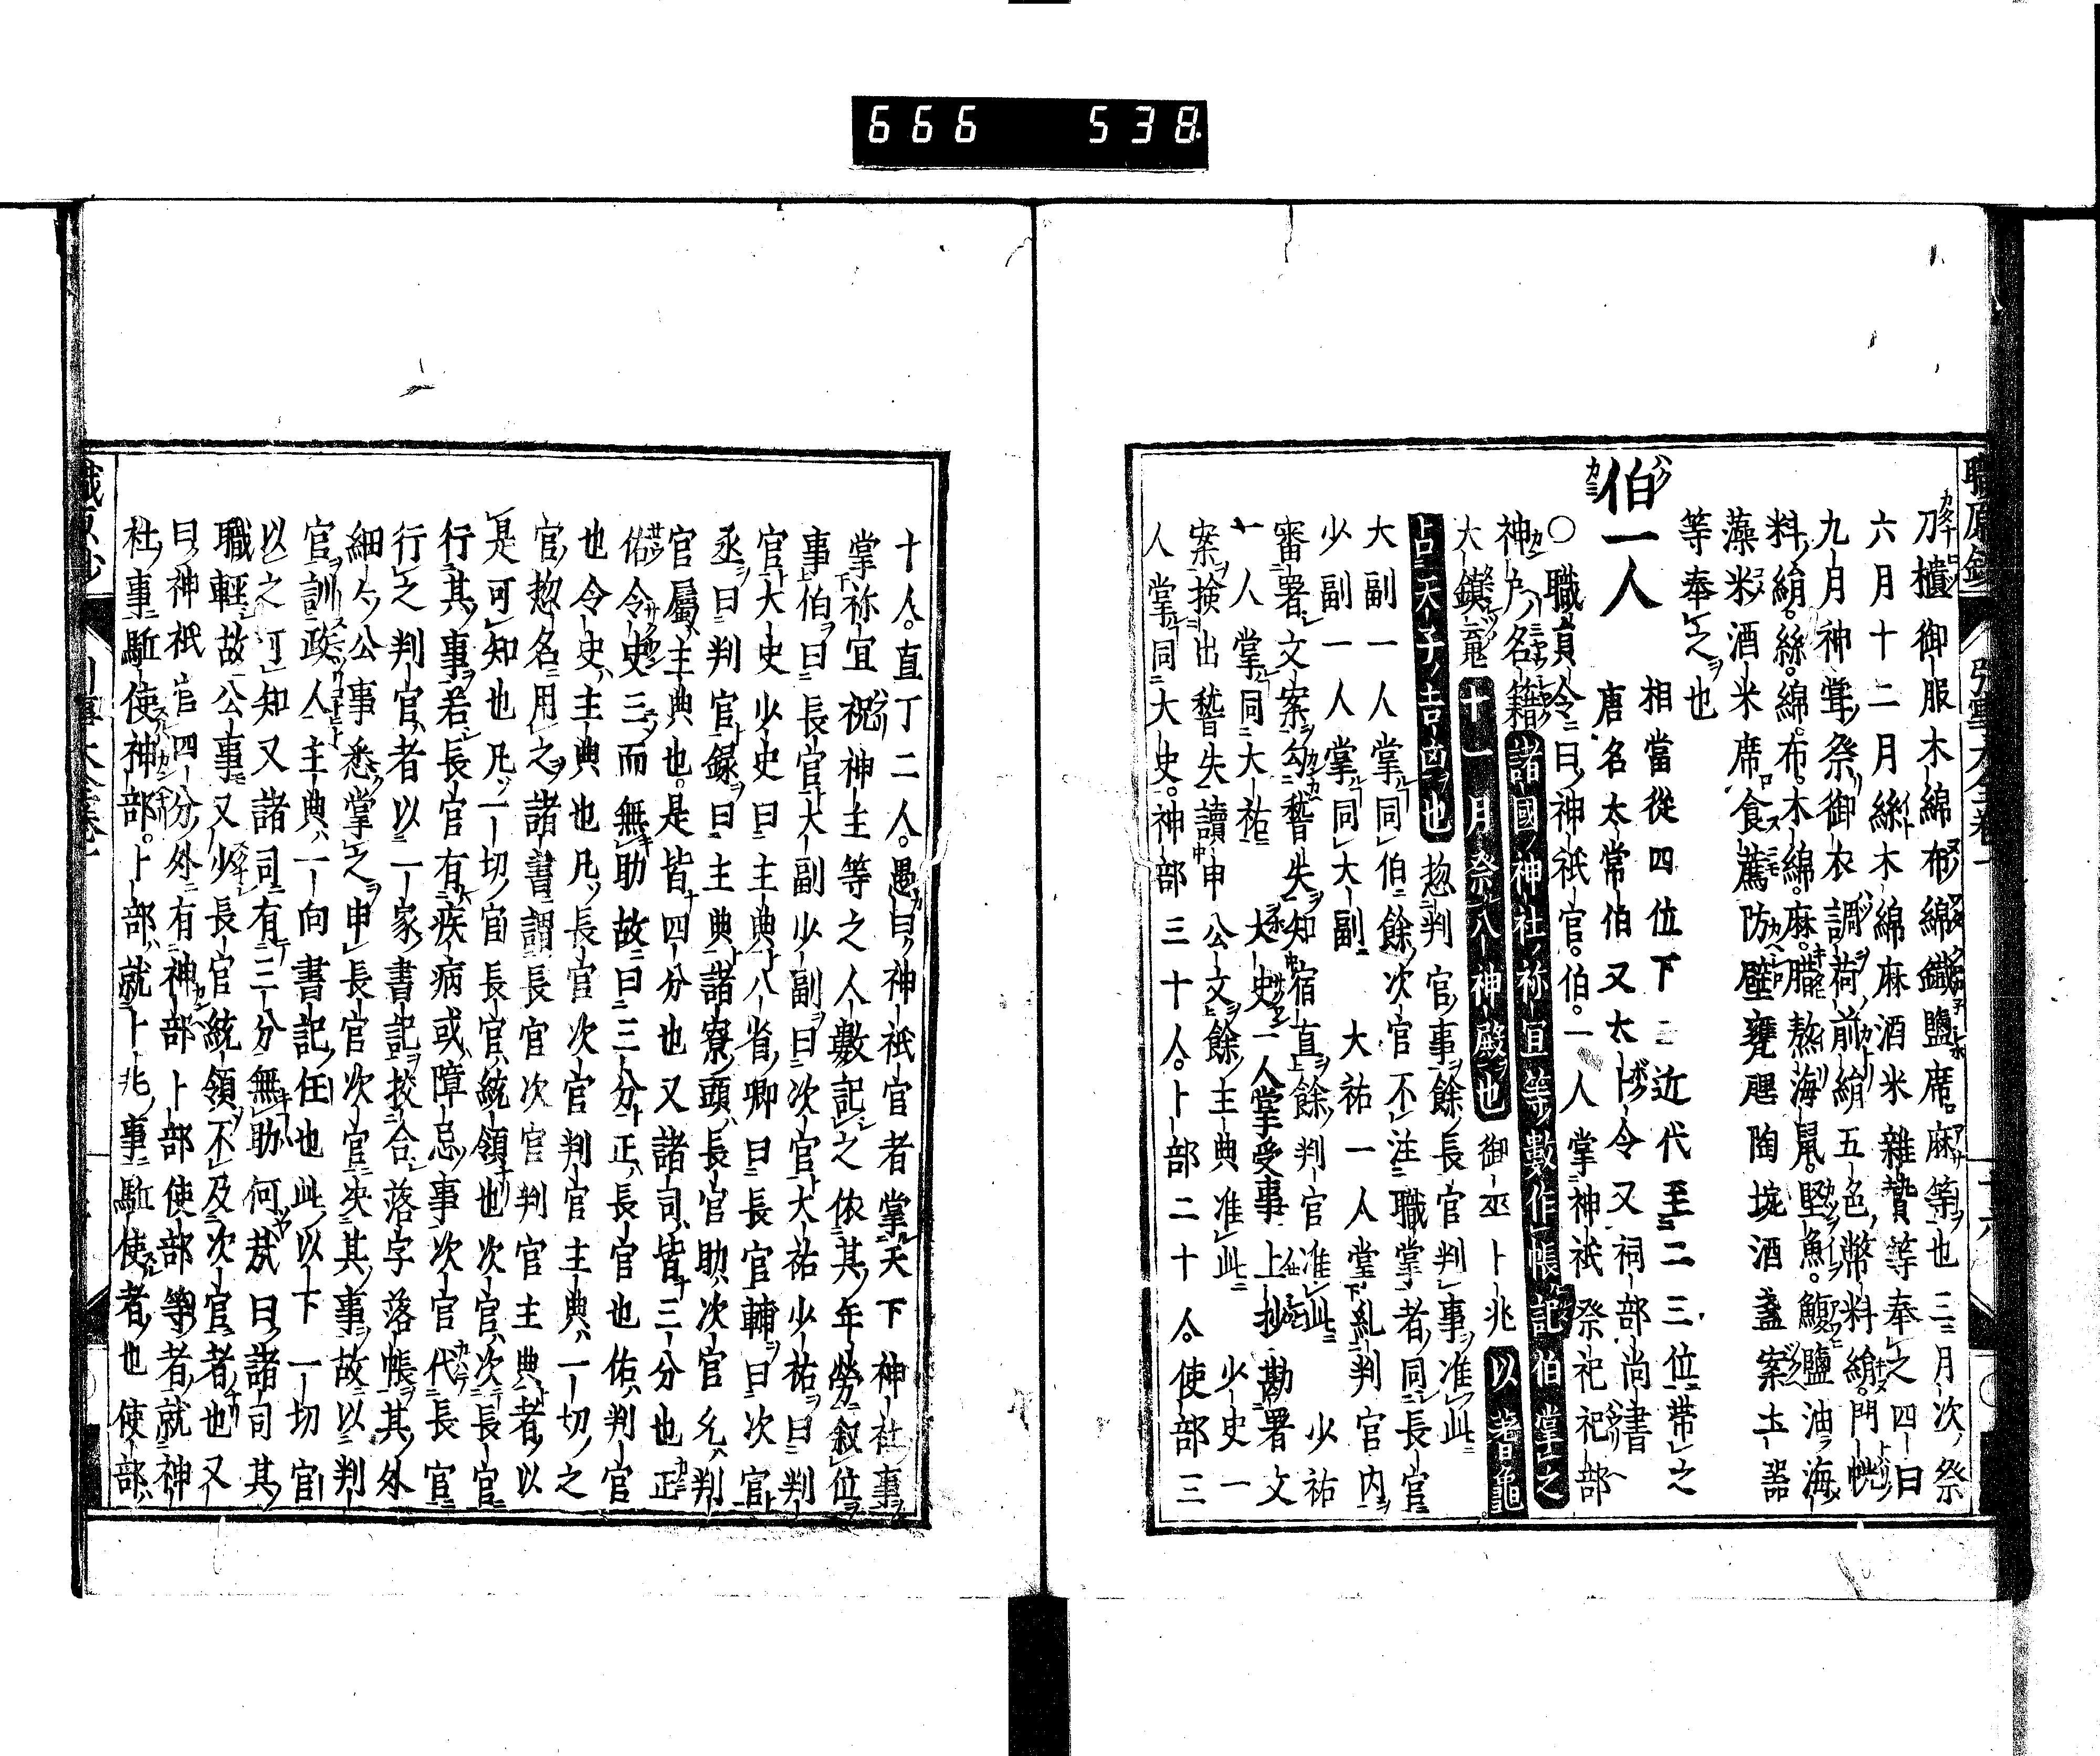 666 538
刀櫃御服木綿布綿鐵鹽席麻等也三月次祭
六月十二月絲木綿麻酒米雜贄等奉之四曰
九月神甞祭御衣調荷前絹五色幣料絹門幌
料絹絲綿布木綿麻腊熬海鼠堅魚鰒鹽油海
藻米酒米席食薦防壁甕𤭖陶埦酒盞案土器
等奉之也
伯一人
相當從四位下 近代至二三位帶之
唐名太常伯又大卜令又祠部尚書
○職員令曰神祇官伯一人掌神祇祭祀祀部
神戶名籍諸國神社祢宜等數作帳記伯掌之
大鎮䰟十一月祭八神殿也御巫卜兆以蓍龜
占天子吉凶也惣判官事餘長官判事准此
大副一人掌同伯餘次官不注職掌者同長官
少副一人掌同大副 大祐一人掌糺判官內
審署文案勾稽失知宿直餘判官准此 少祐
一人掌同大祐 大史一人掌受事上抄勘署文
案撿出稽失讀申公文餘主典准此 少史一
人掌同大史神部三十人卜部二十人使部三
十人直丁二人愚曰神祇官者掌天下神社事
掌祢宜祝神主等之人數記之依其年勞叙位
事伯曰長官大副少副曰次官大祐少祐曰判
官大史少史曰主典八省卿曰長官輔曰次官
丞曰判官録曰主典諸寮頭長官助次官允判
官屬主典也是皆四分也又諸司皆三分也正
佑令史三而無助故曰三分正長官也佑判官
也令史主典也凡長官次官判官主典一切之
官惣名用之諸書謂長官次官判官主典者以
是可知也凡一切官長官統領也次官次長官
行其事若長官有疾病或障忌事次官代長官
行之判官者以一家書記挍合落字落帳其外
細々公事悉掌之申長官次官决其事故以判
官訓政人主典一向書記任也此以下一切官
以之可知又諸司有三分無助何㦲曰諸司其
職輕故公事又少長官統領不及次官者也又
曰神祇官四分外有神部卜部使部等者就神
社事駈使神部卜部就卜兆事駈使者也使部